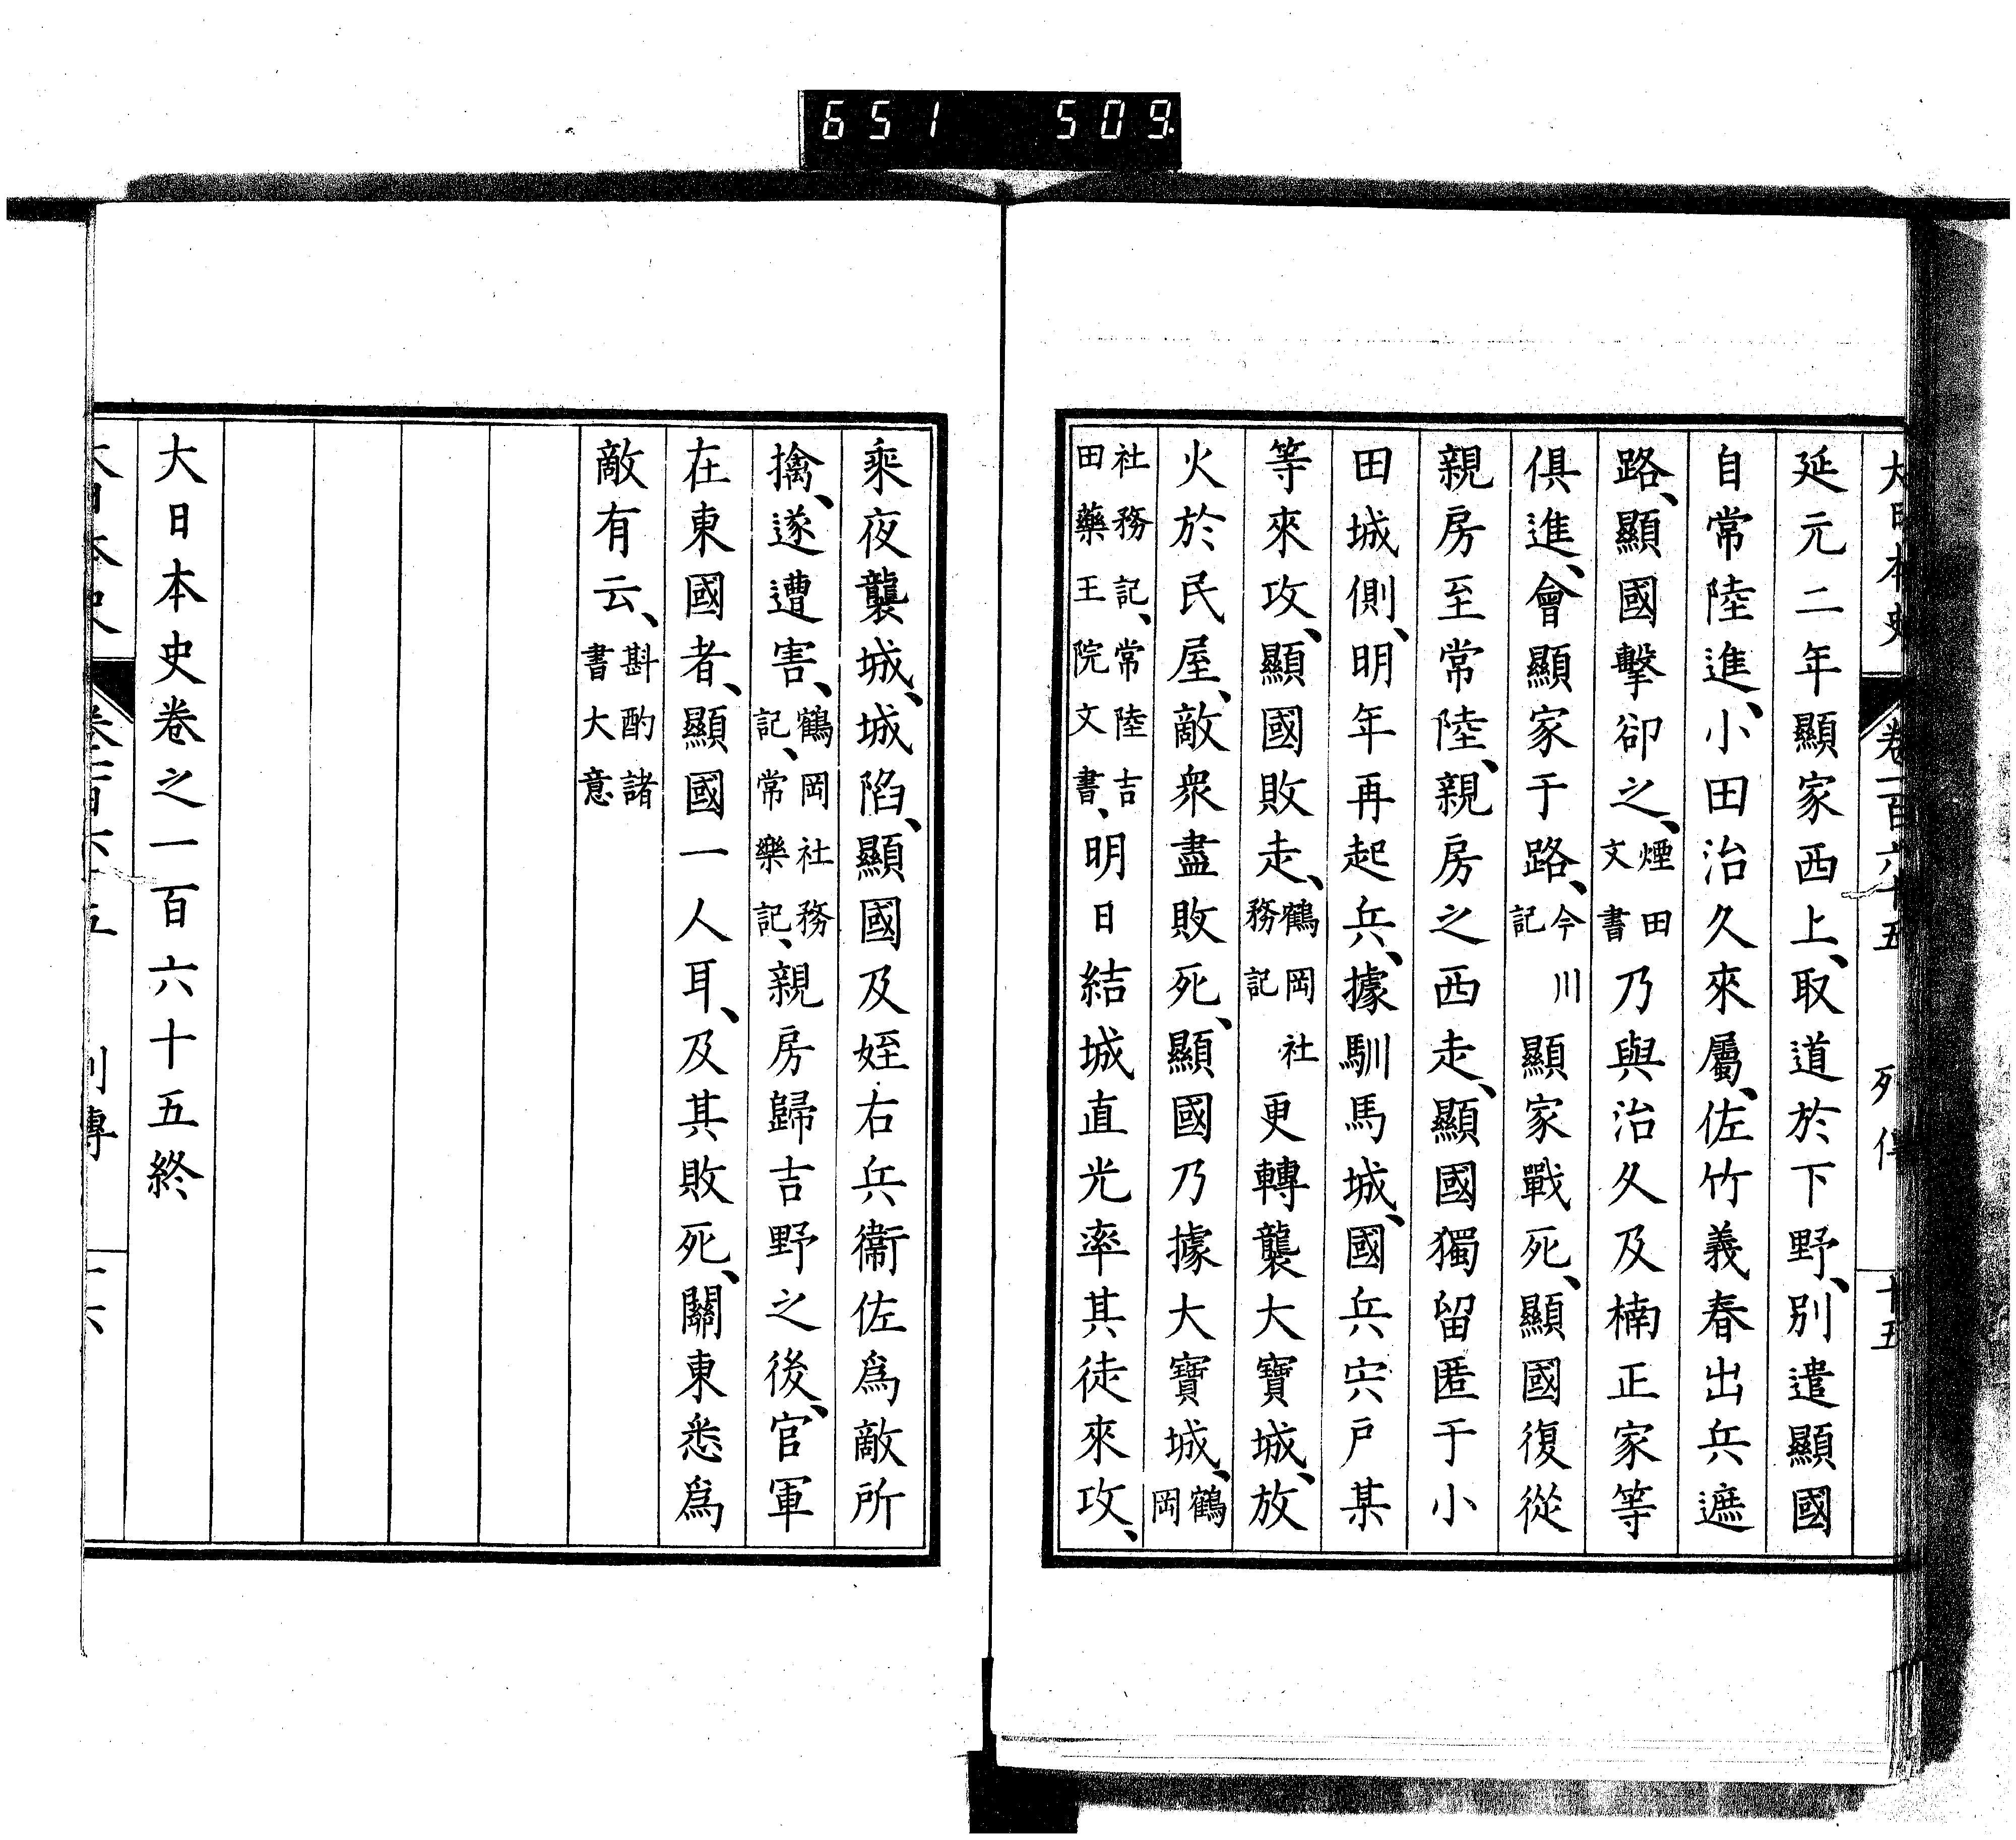 651 509
大日本史 卷一百六十五 列傳 十五
延元二年顯家西上、取道於下野、別遣顯國
自常陸進、小田治久來屬、佐竹義春出兵遮
路、顯國擊卻之、煙田文書乃與治久及楠正家等
俱進、會顯家于路、今川記顯家戰死、顯國復從
親房至常陸、親房之西走、顯國獨留匿于小
田城側、明年再起兵、據馴馬城、國兵宍戶某
等來攻、顯國敗走、鶴岡社務記更轉襲大寶城、放
火於民屋、敵衆盡敗死、顯國乃據大寶城、鶴岡
社務記、常陸吉田藥王院文書、明日結城直光率其徒來攻、
乘夜襲城、城陷、顯國及姪右兵衞佐爲敵所
擒、遂遭害、鶴岡社務記、常樂記、親房歸吉野之後、官軍
在東國者、顯國一人耳、及其敗死、關東悉爲
敵有云、斟酌諸書大意
大日本史卷之一百六十五終
大日本史 卷一百六十五 列傳 十六